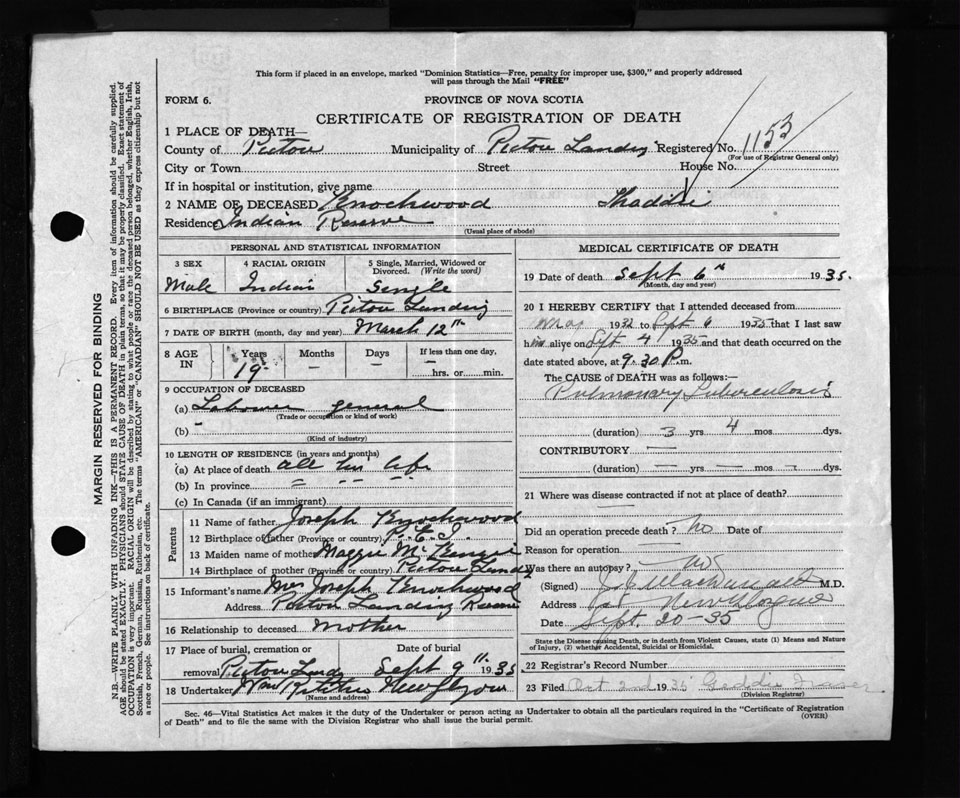 This form if placed in an envelope, marked "Dominion Statistics—Free, penalty for improper use, $300," and properly addressed
will pass through the Mail "FREE"
FORM 6.
PROVINCE OF NOVA SCOTIA
CERTIFICATE OF REGISTRATION OF DEATH
1 PLACE OF DEATH—
County of Pictou Municipality of Pictou Landing Registered No. 1153
(For use of Registrar General only)
City or Town Street House No.
If in hospital or institution, give name
2 NAME OF DECEASED Knochwood Thaddie
Residence Indian Reserve
(Usual place of abode)
PERSONAL AND STATISTICAL INFORMATION
3 SEX 4 RACIAL ORIGIN 5 Single, Married, Widowed or
Divorced. (Write the word)
Male Indian Single
6 BIRTHPLACE (Province or country) Pictou Landing
7 DATE OF BIRTH (month, day and year) March 12th
8 AGE IN Years Months Days If less than one day,
19 — — hrs. or min.
9 OCCUPATION OF DECEASED
(a) Labourer general
(Trade or occupation or kind of work)
(b) –
(Kind of industry)
10 LENGTH OF RESIDENCE (in years and months)
(a) At place of death all his life
(b) In province " " "
(c) In Canada (if an immigrant)
Parents
11 Name of father Joseph Knochwood
12 Birthplace of father (Province or country) P.E.I.
13 Maiden name of mother Maggie McKenzie
14 Birthplace of mother (Province or country) Pictou Landg
15 Informant's name Mrs Joseph Knochwood
Address Pictou Landing Reserve
16 Relationship to deceased Mother
17 Place of burial, cremation or Date of burial
removal Pictou Landg Sept 9th 1935
18 Undertaker New Glasgow
(Name and address)
MEDICAL CERTIFICATE OF DEATH
19 Date of death Sept 6th 1935.
(Month, day and year)
20 I HEREBY CERTIFY that I attended deceased from
May 1932 to Sept 6 1935 that I last saw
him alive on Sept 4 1935 and that death occurred on the
date stated above, at 9.30 P.m.
The CAUSE of DEATH was as follows:—
Pulmonary Tuberculosis
(duration) 3 yrs 4 mos dys.
CONTRIBUTORY —
(duration) — yrs — mos — dys.
21 Where was disease contracted if not at place of death?
—
Did an operation precede death? no Date of
Reason for operation —
Was there an autopsy? no
(Signed) M.D.
Address New Glasgow
Date Sept. 20-35
State the Disease causing Death, or in death from Violent Causes, state (1) Means and Nature
of Injury, (2) whether Accidental, Suicidal or Homicidal.
22 Registrar's Record Number
23 Filed Oct 2nd 1935 Geddie Fraser
(Division Registrar)
Sec. 46—Vital Statistics Act makes it the duty of the Undertaker or person acting as Undertaker to obtain all the particulars required in the "Certificate of Registration
of Death" and to file the same with the Division Registrar who shall issue the burial permit. (OVER)
MARGIN RESERVED FOR BINDING
N.B.—WRITE PLAINLY WITH UNFADING INK—THIS IS A PERMANENT RECORD. Every item of information should be carefully supplied.
AGE should be stated EXACTLY. PHYSICIANS should STATE CAUSE OF DEATH in plain terms, so that it may be properly classified. Exact statement of
OCCUPATION is very important. RACIAL ORIGIN will be described by stating to what people or race the deceased person belonged, whether English, Irish,
Scottish, French, German, Russian, Ruthenian, etc. The terms "AMERICAN" or "CANADIAN" SHOULD NOT BE USED as they express citizenship but not
a race or people. See instructions on back of certificate.